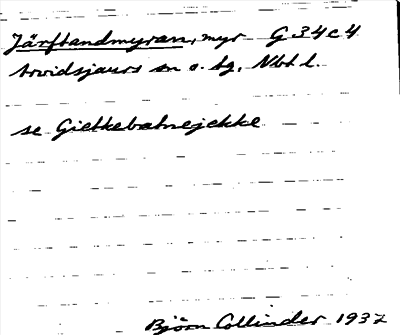 Järftandmyran, myr G34c4
Arvidsjaurs sn o. tg, Nbt l.
se Gietkebatnejekke
Björn Collinder 1937